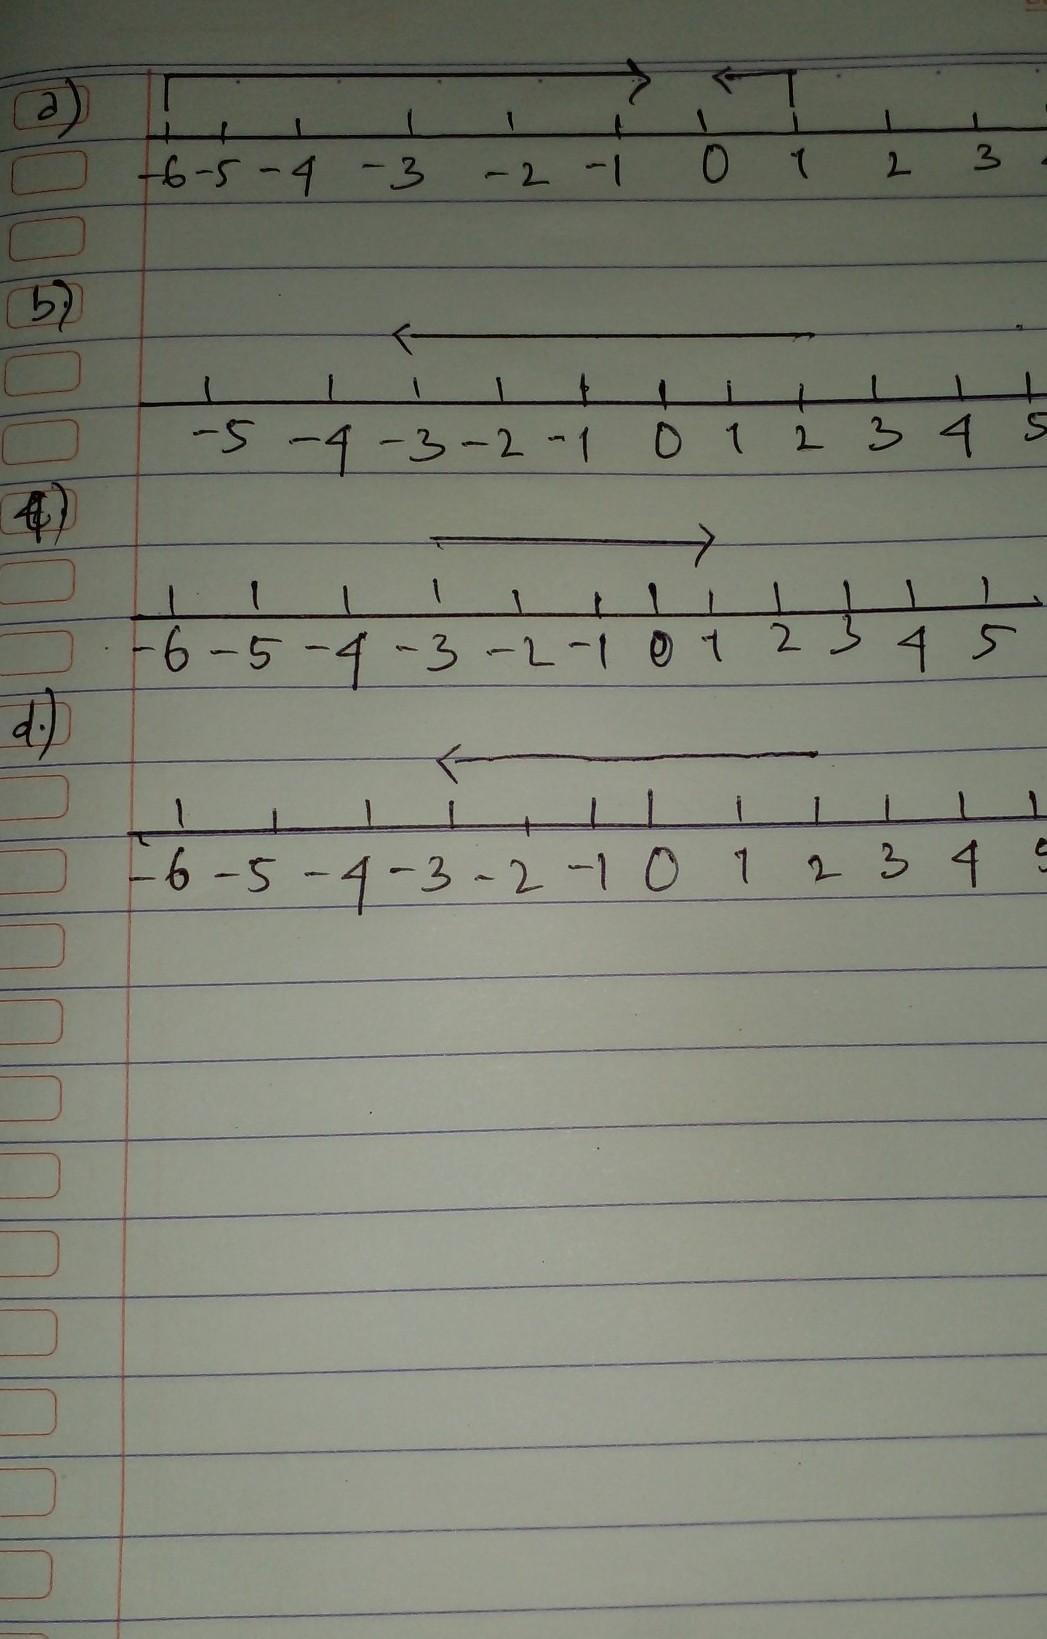 a)
-6 -5 -4 -3 -2 -1 0 1 2 3
b)
-5 -4 -3 -2 -1 0 1 2 3 4 5
c)
-6 -5 -4 -3 -2 -1 0 1 2 3 4 5
d.)
-6 -5 -4 -3 -2 -1 0 1 2 3 4 5